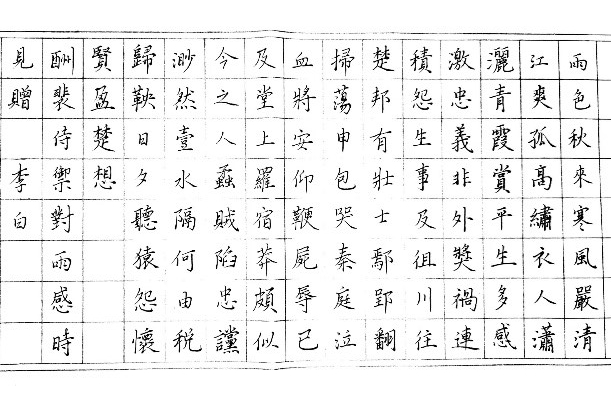 雨色秋來寒風嚴清
江爽孤高繡衣人瀟
灑青霞賞平生多感
激忠義非外獎禍連
積怨生事及徂川往
楚邦有壯士鄢郢翻
掃蕩申包哭秦庭泣
血將安仰鞭屍辱已
及堂上羅宿莽頗似
今之人蟊賊陷忠讜
渺然壹水隔何由稅
歸鞅日夕聽猿怨懷
賢盈楚想
酬裴侍禦對雨感時
見贈 李白